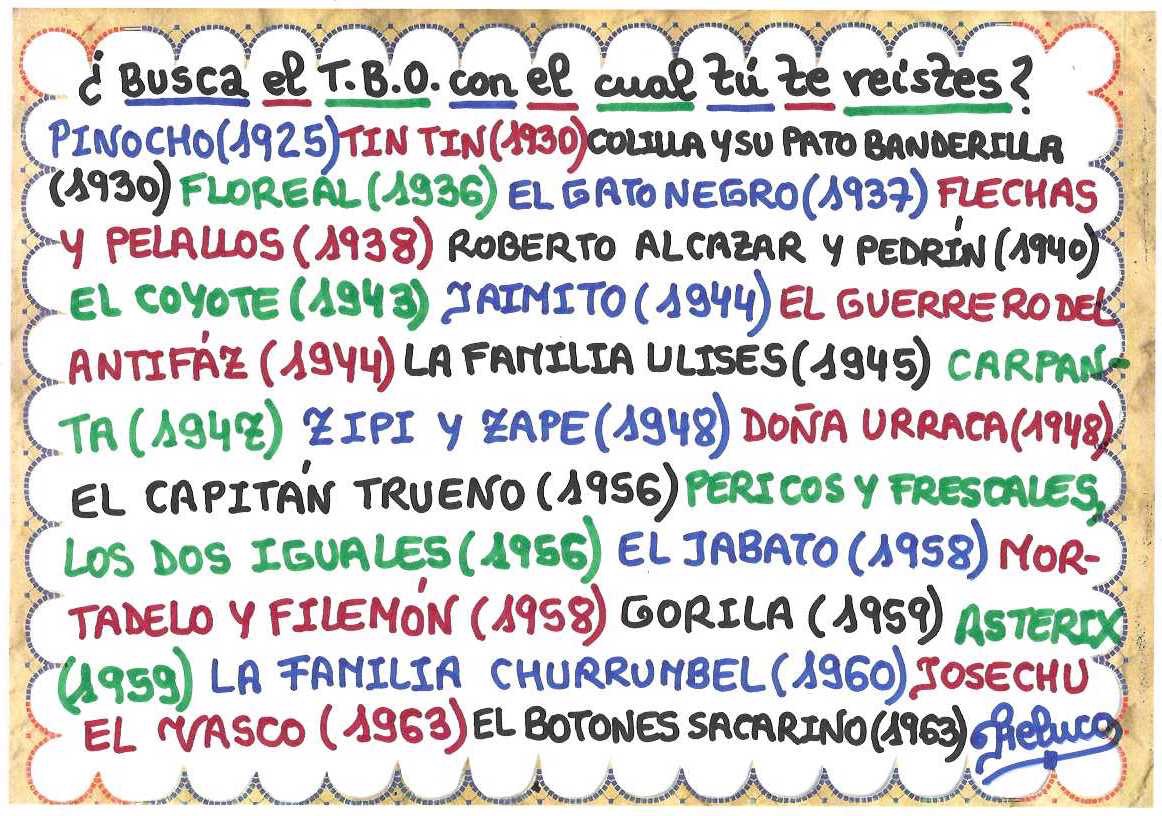 ¿ Busca el T.B.O. con el cual tú te reístes?
PINOCHO(1925) TIN TIN(1930) COLILLA Y SU PATO BANDERILLA
(1930) FLOREAL (1936) EL GATO NEGRO(1937) FLECHAS
Y PELALLOS (1938) ROBERTO ALCAZAR Y PEDRÍN (1940)
EL COYOTE (1943) JAIMITO (1944) EL GUERRERO DEL
ANTIFÁZ (1944) LA FAMILIA ULISES (1945) CARPAN-
TA (1947) ZIPI Y ZAPE (1948) DOÑA URRACA (1948)
EL CAPITÁN TRUENO (1956) PERICOS Y FRESCALES,
LOS DOS IGUALES (1956) EL JABATO (1958) MOR-
TADELO Y FILEMÓN (1958) GORILA (1959) ASTERIX
(1959) LA FAMILIA CHURRUMBEL (1960) JOSECHU
EL VASCO (1963) EL BOTONES SACARINO (1963)